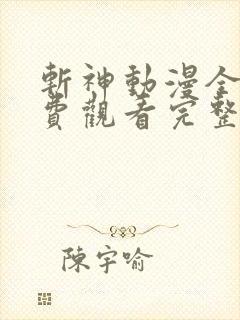 斬神動漫全
費觀看完整
陳宇喻